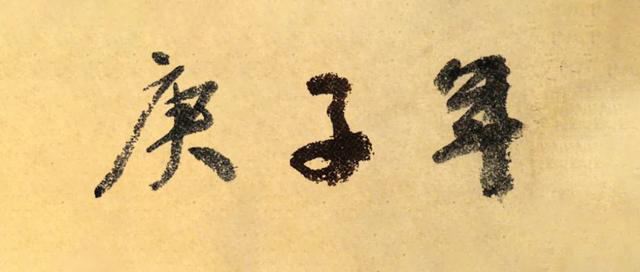 庚子年